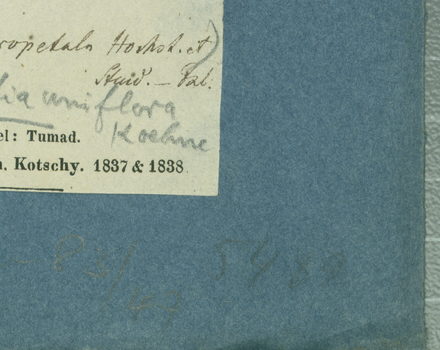 ropetala Hochst. et)
Steud. — Sal.
lia uniflora
Koehne
el: Tumad.
n. Kotschy. 1837 & 1838